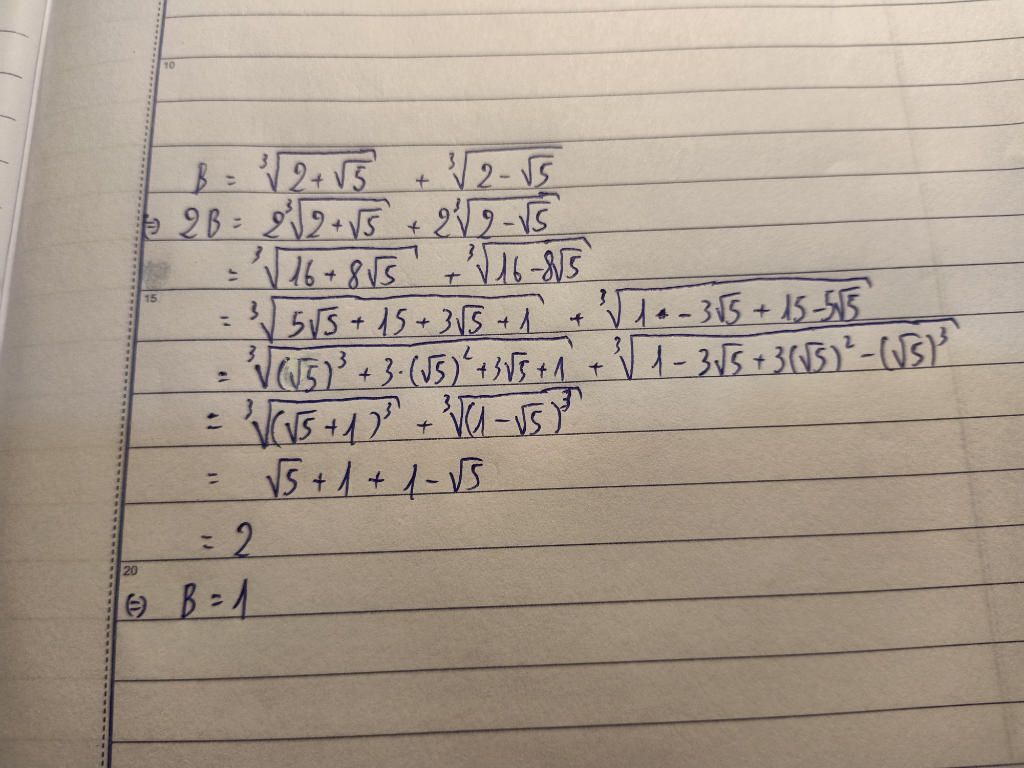 10
B = ∛(2 + √5) + ∛(2 - √5)
⇔ 2B = 2∛(2 + √5) + 2∛(2 - √5)
= ∛(16 + 8√5) + ∛(16 - 8√5)
15
= ∛(5√5 + 15 + 3√5 + 1) + ∛(1 - 3√5 + 15 - 5√5)
= ∛((√5)³ + 3·(√5)² + 3√5 + 1) + ∛(1 - 3√5 + 3(√5)² - (√5)³)
= ∛((√5 + 1)³) + ∛((1 - √5)³)
= √5 + 1 + 1 - √5
= 2
20
⇔ B = 1